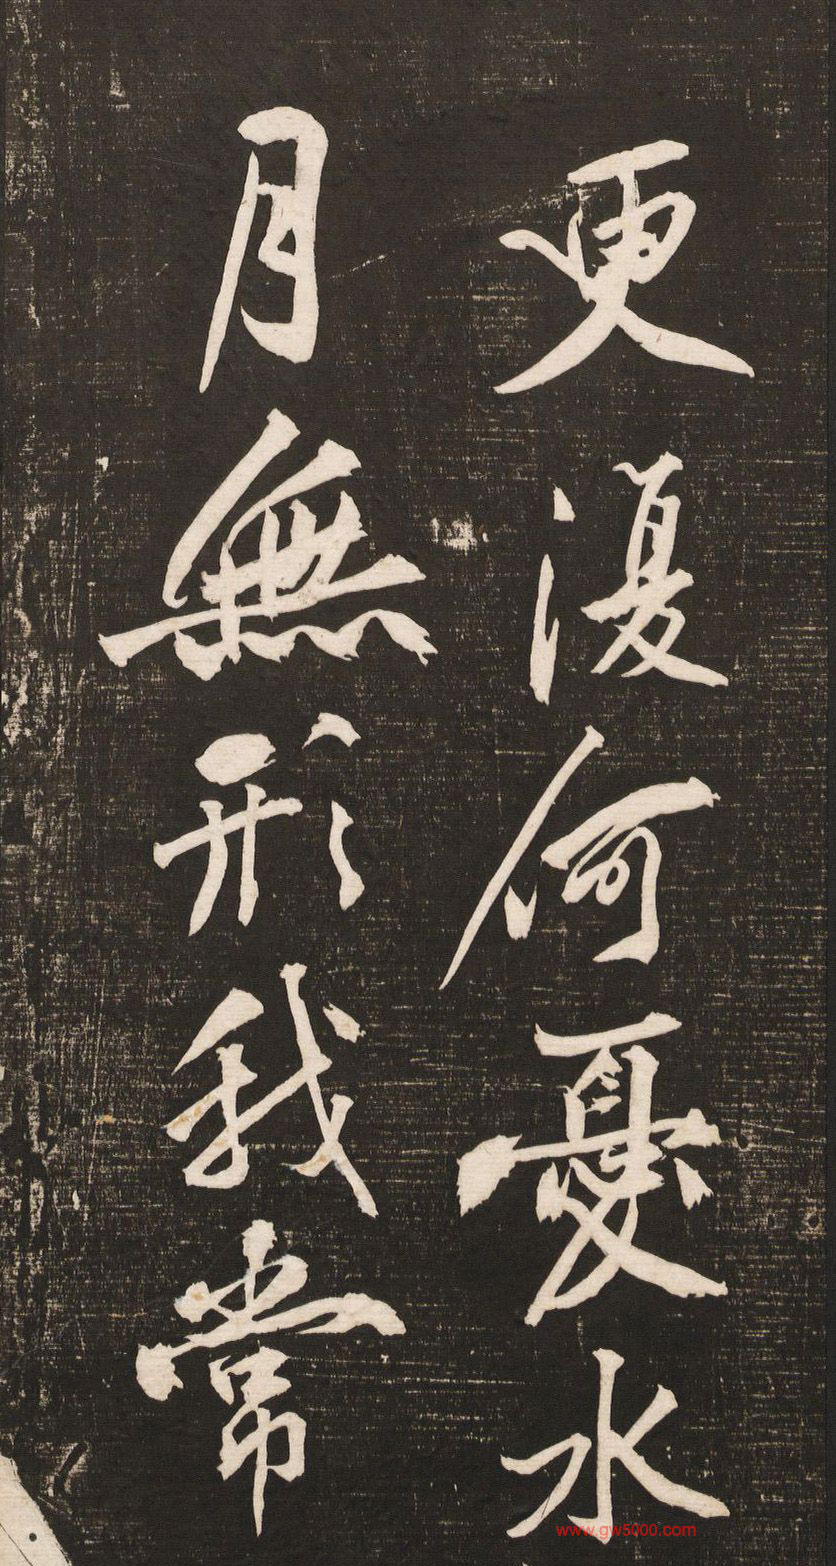 更復何憂水
月無形我常
www.gw5000.com